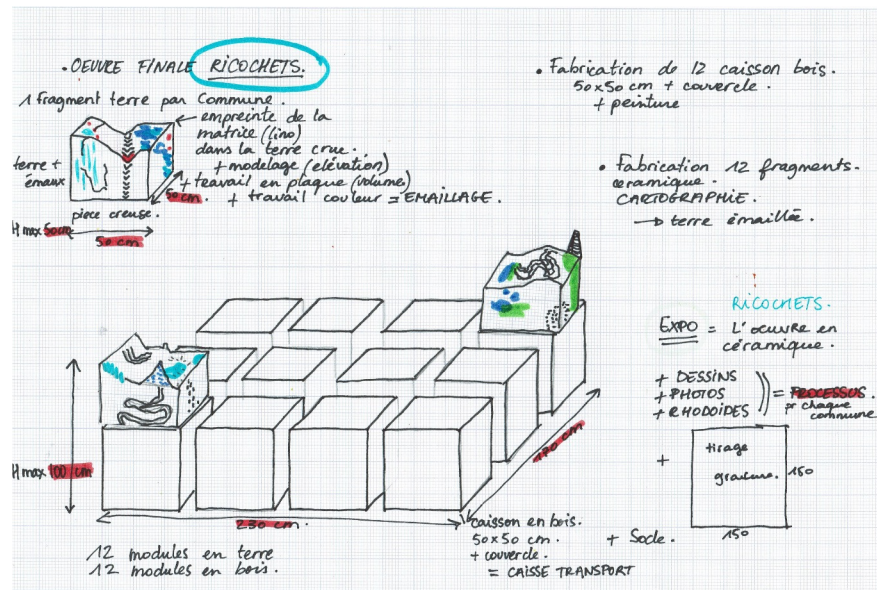 • OEUVRE FINALE RICOCHETS.
1 fragment terre par Commune.
empreinte de la
matrice (lino)
dans la terre crue.
+ modelage (elévation)
+ travail en plaque (volume)
+ travail couleur = EMAILLAGE.
terre +
émaux
50 cm.
pièce creuse.
H max 50cm
50 cm
• Fabrication de 12 caisson bois.
50x50 cm + couvercle.
+ peinture
• Fabrication 12 fragments.
ceramique.
CARTOGRAPHIE.
→ terre émaillée.
RICOCHETS.
EXPO = L'oeuvre en
céramique.
+ DESSINS
+ PHOTOS
+ RHODOÏDES
= PROCESSUS.
pr chaque
commune
+
tirage
gravure.
150
150
+ Socle.
H max 100 cm
230 cm.
170 cm
caisson en bois.
50x50 cm.
+ couvercle.
= CAISSE TRANSPORT
12 modules en terre
12 modules en bois.